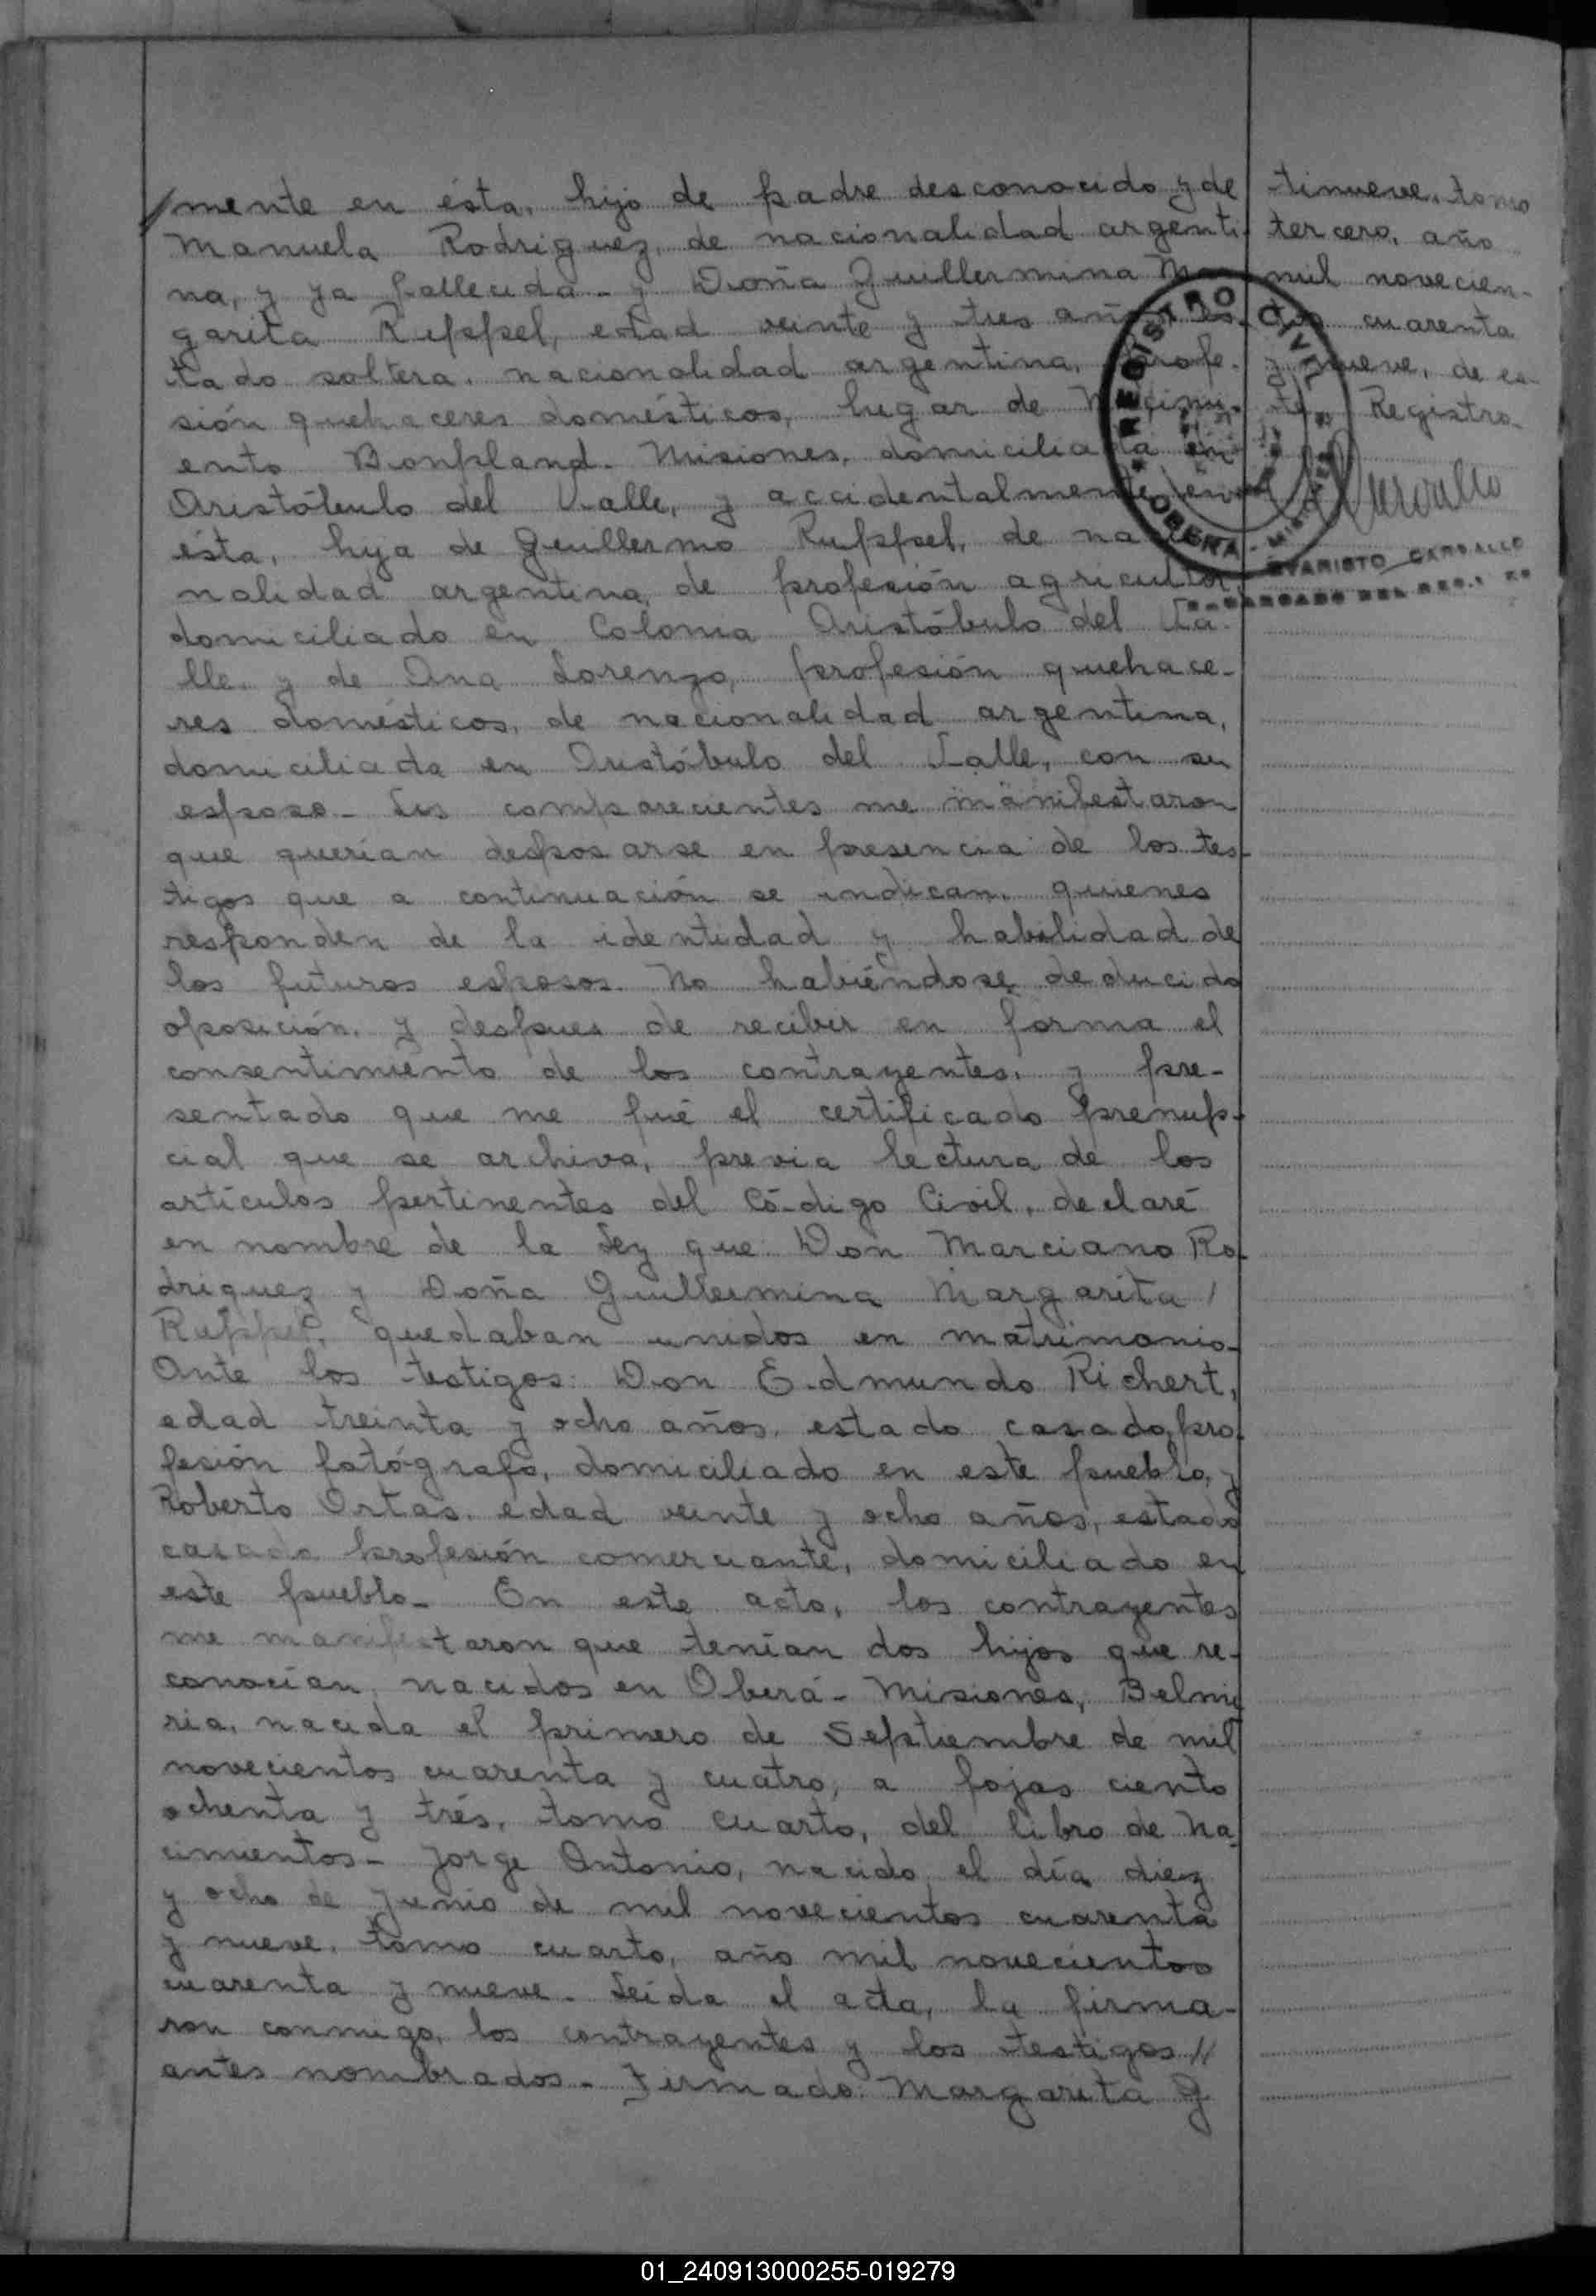 /mente en ésta, hijo de padre desconocido y de
Manuela Rodriguez, de nacionalidad argenti-
na, y ya fallecida - y Doña Guillermina Mar
garita Ruppel, edad veinte y tres años, es-
tado soltera, nacionalidad argentina, profe-
sión quehaceres domésticos, lugar de nacimi-
ento Bonpland - Misiones, domiciliada en
Aristóbulo del Valle, y accidentalmente en
ésta, hija de Guillermo Ruppel, de nacio
nalidad argentina, de profesión agricultor
domiciliado en Colonia Aristóbulo del Va-
lle - y de Ana Lorenzo, profesión quehace-
res domésticos, de nacionalidad argentina,
domiciliada en Aristóbulo del Valle, con su
esposo - Los comparecientes me manifestaron
que querían desposarse en presencia de los tes
tigos que a continuación se indican, quienes
responden de la identidad y habilidad de
los futuros esposos. No habiéndose deducido
oposición, y despues de recibir en forma el
consentimiento de los contrayentes, y pre-
sentado que me fué el certificado prenup-
cial que se archiva, previa lectura de los
artículos pertinentes del Código Civil, declaré
en nombre de la Ley que Don Marciano Ro-
driguez y Doña Guillermina Margarita /
Ruppel, quedaban unidos en matrimonio -
Ante los testigos: Don Edmundo Richert,
edad treinta y ocho años, estado casado, pro-
fesión fotógrafo, domiciliado en este pueblo, y
Roberto Ortas, edad veinte y ocho años, estado
casado profesión comerciante, domiciliado en
este pueblo - En este acto, los contrayentes
me manifestaron que tenían dos hijos que re-
conocían, nacidos en Oberá - Misiones, Belmi
ria, nacida el primero de Septiembre de mil
novecientos cuarenta y cuatro, a fojas ciento
ochenta y trés, tomo cuarto, del libro de Na-
cimientos - Jorge Antonio, nacido el día diez
y ocho de Junio de mil novecientos cuarenta
y nueve, tomo cuarto, año mil novecientos
cuarenta y nueve - Leída el acta, la firma-
ron conmigo, los contrayentes y los testigos //
antes nombrados - Firmado: Margarita G
tinueve, tomo
tercero, año
mil novecien-
tos cuarenta
y nueve, de es-
te Registro -
REGISTRO CIVIL
OBERA - MISIONES
EVARISTO CARBALLO
ENCARGADO DEL REG.
01_240913000255-019279